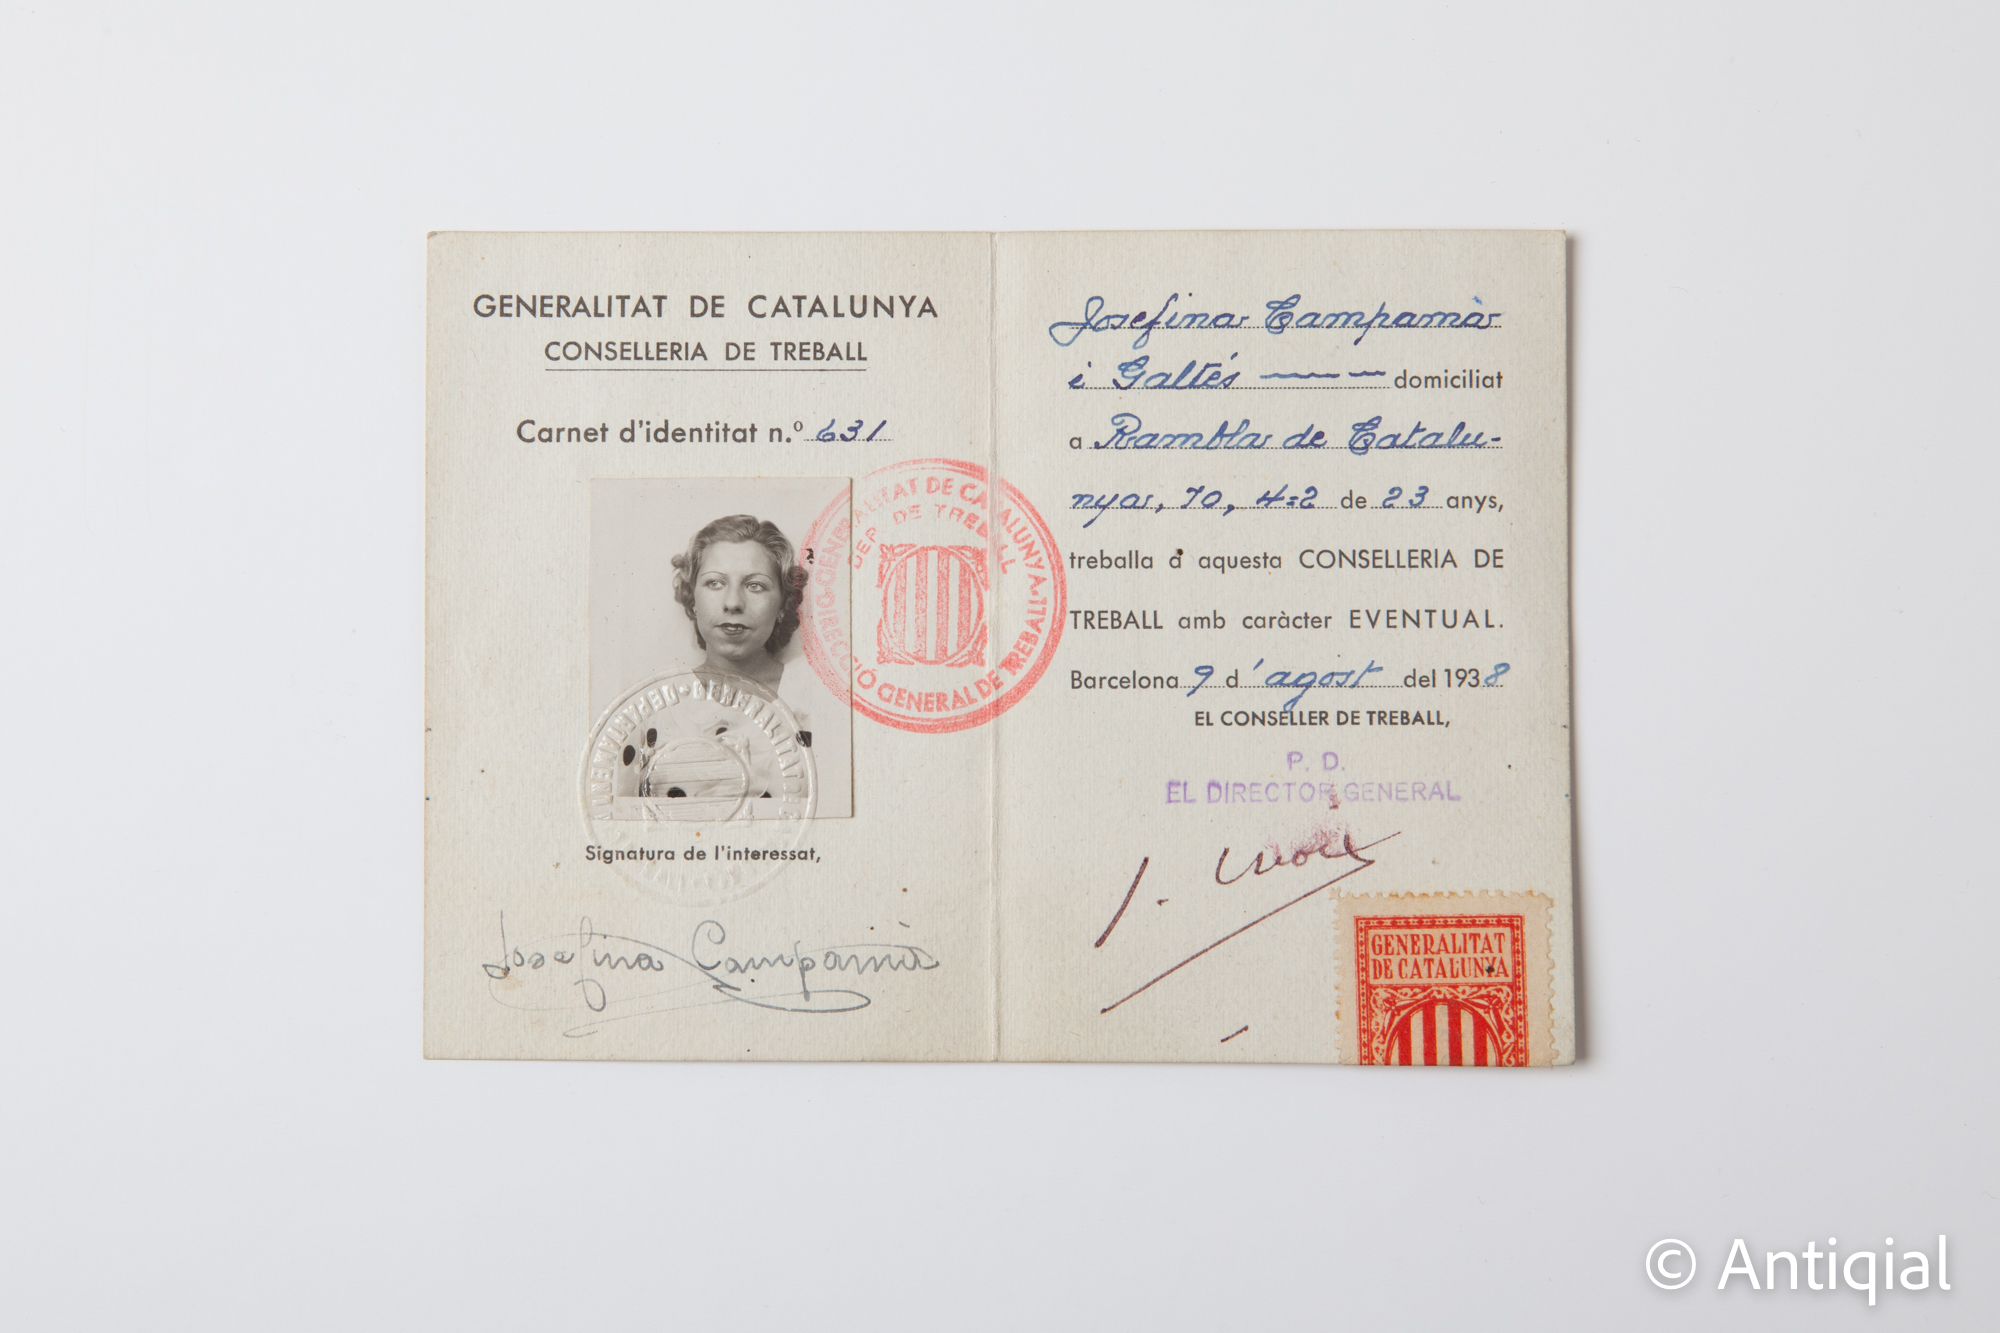 GENERALITAT DE CATALUNYA
CONSELLERIA DE TREBALL
Carnet d'identitat n.º 631
DIRECCIÓ GENERAL DE TREBALL · GENERALITAT DE CATALUNYA
DEP. DE TREBALL
Signatura de l'interessat,
Josefina Campamà
Josefina Campamà
i Galtés domiciliat
a Rambla de Catalu-
nya, 70, 4=2 de 23 anys,
treballa a aquesta CONSELLERIA DE
TREBALL amb caràcter EVENTUAL.
Barcelona 9 d'agost del 1938
EL CONSELLER DE TREBALL,
P. D.
EL DIRECTOR GENERAL
GENERALITAT
DE CATALUNYA
© Antiqial